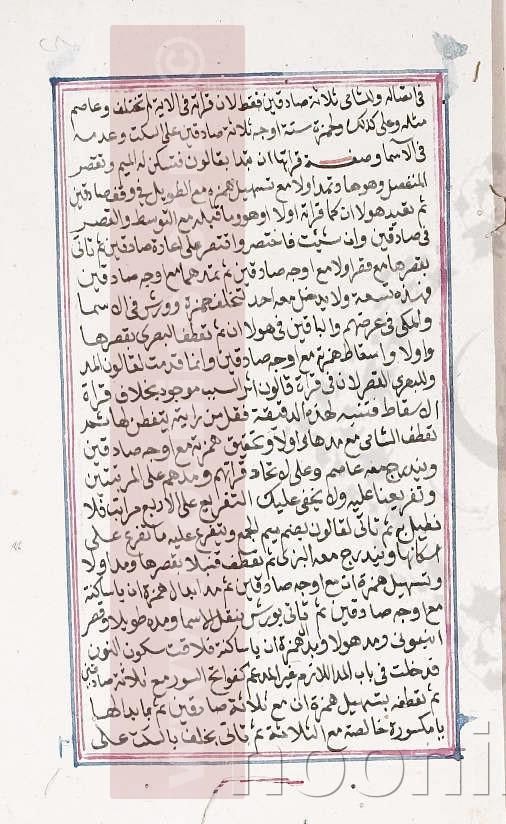 في اتقاله والشاي ثلاثة صادقين فقط لان قراته في الاية لم تختلف وعاصم
مثله وعلى كذلك ولحمزة ستة اوجه ثلاثة صادقين على السكت وعدمه
في الاسما وصفة قراتها ان تبدا بقالون فتسكن له الميم وتقصر
المنفصل وهوها وتمد اولا مع تسهيل همزه مع الطويل في وقف صادقين
ثم تعيد هولا ان كما قراته اولا او هو وما قبله مع التوسط والقصر
في صادقين وان شيت فاختصر واقتصر على اعادة صادقين ثم تاتى
بقصرها مع قصر اولا مع اوجه صادقين ثم تمدهما مع اوجه صادقين
فهذه تسعة ولا يدخل معه احد لتخلف حمزة وورش في الاسما
والمكي في عرضهم والباقين في هولا ان ثم تعطف البصري بقصرها
واولا واسقاط همزة مع اوجه صادقين وانما قدمت لقالون المد
وللبصري القصر لان في قراة قالون اثر السبب موجود بخلاف قراة
الاسقاط فتنبه لهذه الدقيقة فقل من رايته يتفطن لها ثم
تعطف الشامي مع مدها في اولا وتحقيق همزة مع اوجه صادقين
ويندرج معه عاصم وعلى لاتحاد قراتهم ومدهم على المرتبتين
وتفريعنا عليه ولا يخفى عليك التفريع على الاربع مراتب فلا
نطيل ثم تاتي لقالون بضم ميم الجمع ويتفرع عليه ما تفرع على
اسكانها ويندرج معه البزى ثم تعطف قنبلا بقصرها ومد اولا
وتسهيل همزة ان مع اوجه صادقين ثم مد ابدال همزة ان يا ساكنة
مع اوجه صادقين ثم تاتى بورش بنقل الاسما ومده طويلا وقصر
انبيونى ومد هولا وبدل همزة ان يا ساكنة فلاقت سكون النون
فدخلت في باب المد اللازم غير المدغم كفواتح السور مع ثلاثة صادقين
ثم تعطفه بتسهيل همزة ان مع ثلاثة صادقين ثم بابدالها
يا مكسورة خالصة مع الثلاثة ثم تاتى بخلف بالسكت على
nooni